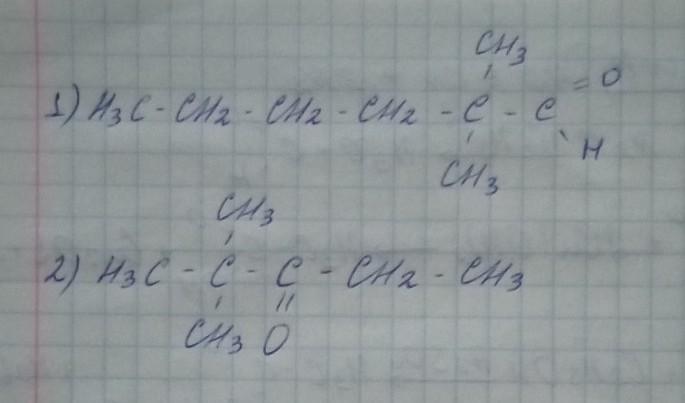 CH3
1) H3C - CH2 - CH2 - CH2 - C - C = O
H
CH3
CH3
2) H3C - C - C - CH2 - CH3
CH3 O